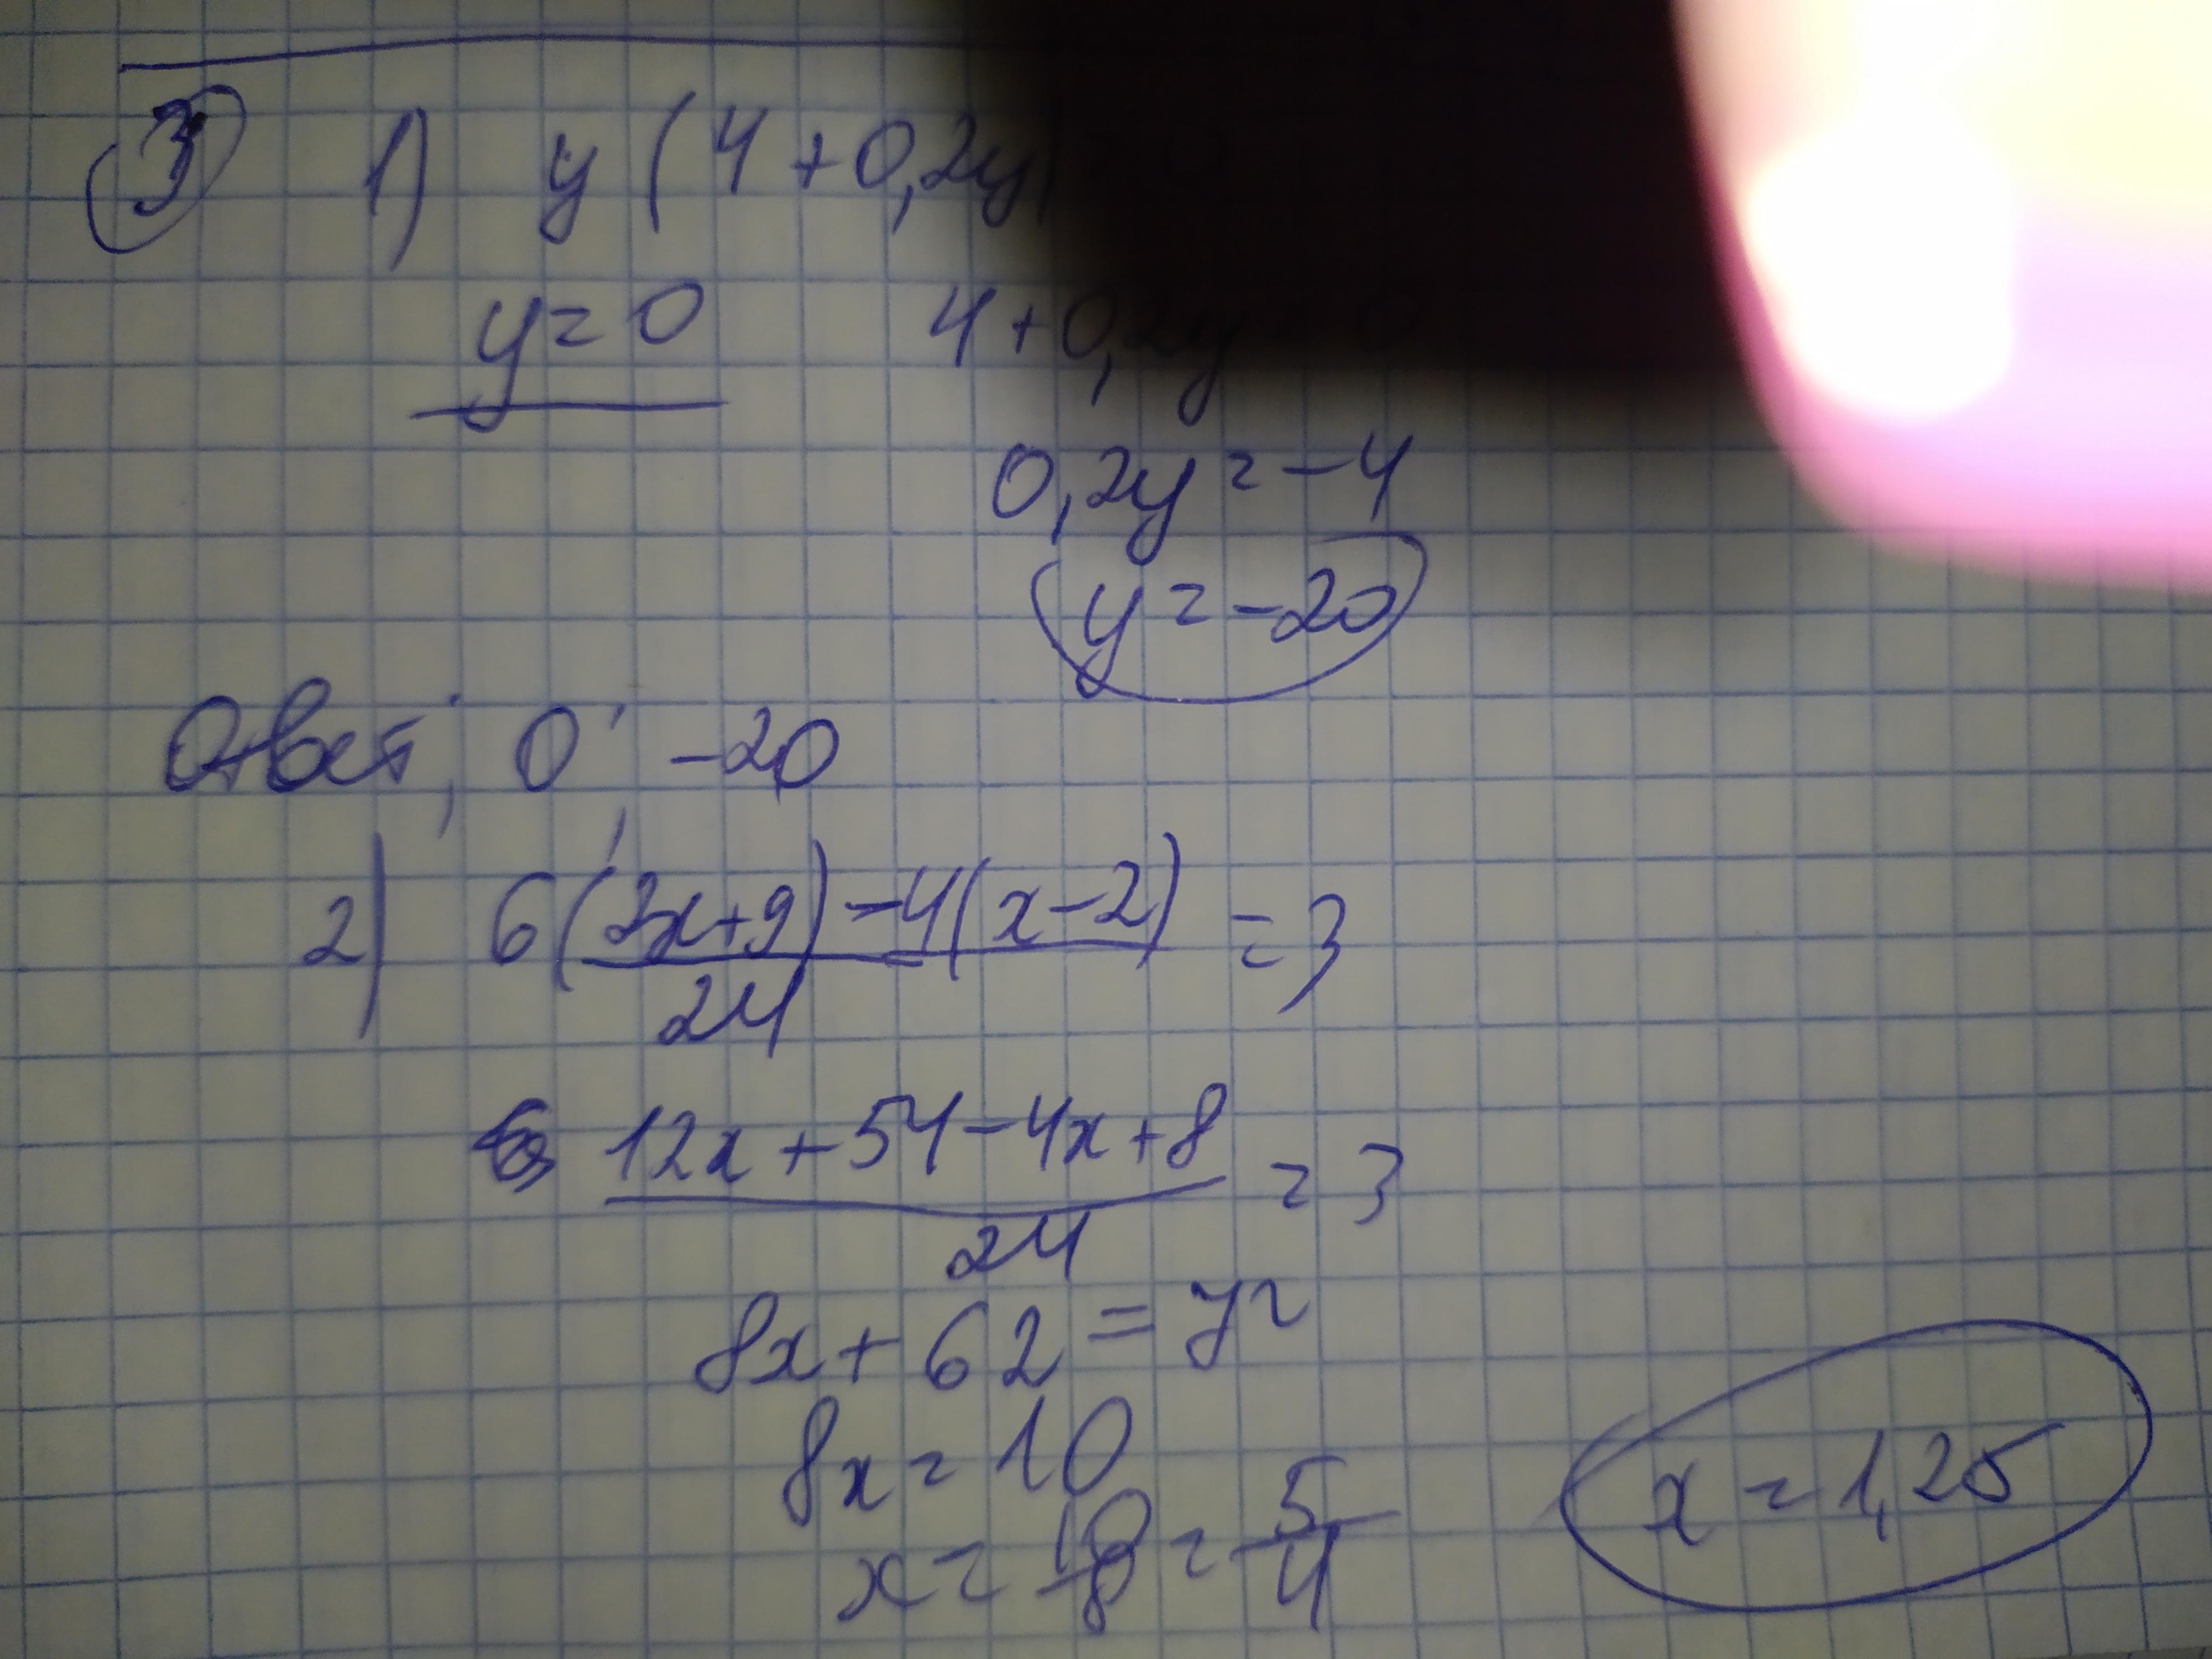 3 1) y(4+0,2y)=0
y=0 4+0,2y=0
0,2y=-4
y=-20
Ответ: 0; -20
2) 6(2x+9)-4(x-2)/24=3
12x+54-4x+8/24=3
8x+62=72
8x=10
x=10/8=5/4 x=1,25